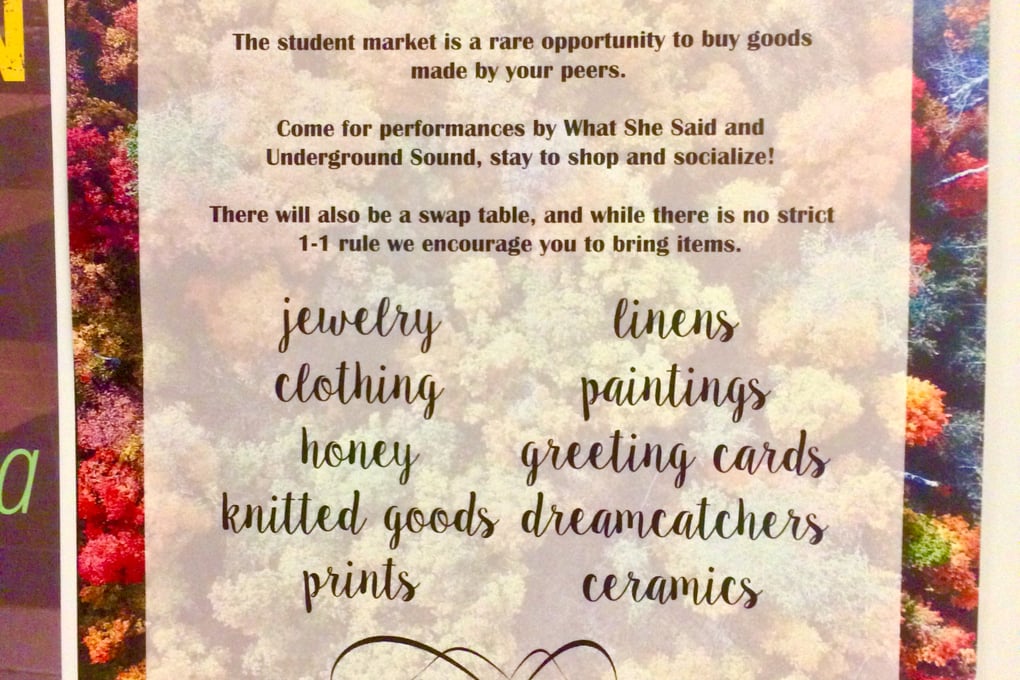 N
The student market is a rare opportunity to buy goods
made by your peers.
Come for performances by What She Said and
Underground Sound, stay to shop and socialize!
There will also be a swap table, and while there is no strict
1-1 rule we encourage you to bring items.
jewelry
clothing
honey
knitted goods
prints
linens
paintings
greeting cards
dreamcatchers
ceramics
a